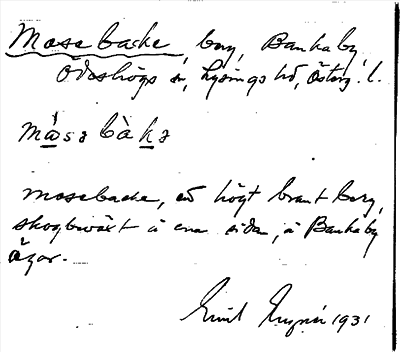 Mosebacke, berg, Bankaby,
Ödeshögs sn, Lysings hd, Österg. l.
måsə bàkə
Mosebacke, ett högt brant berg,
skogbeväxt å ena sidan, å Bankaby
ägor.
Emil 1931